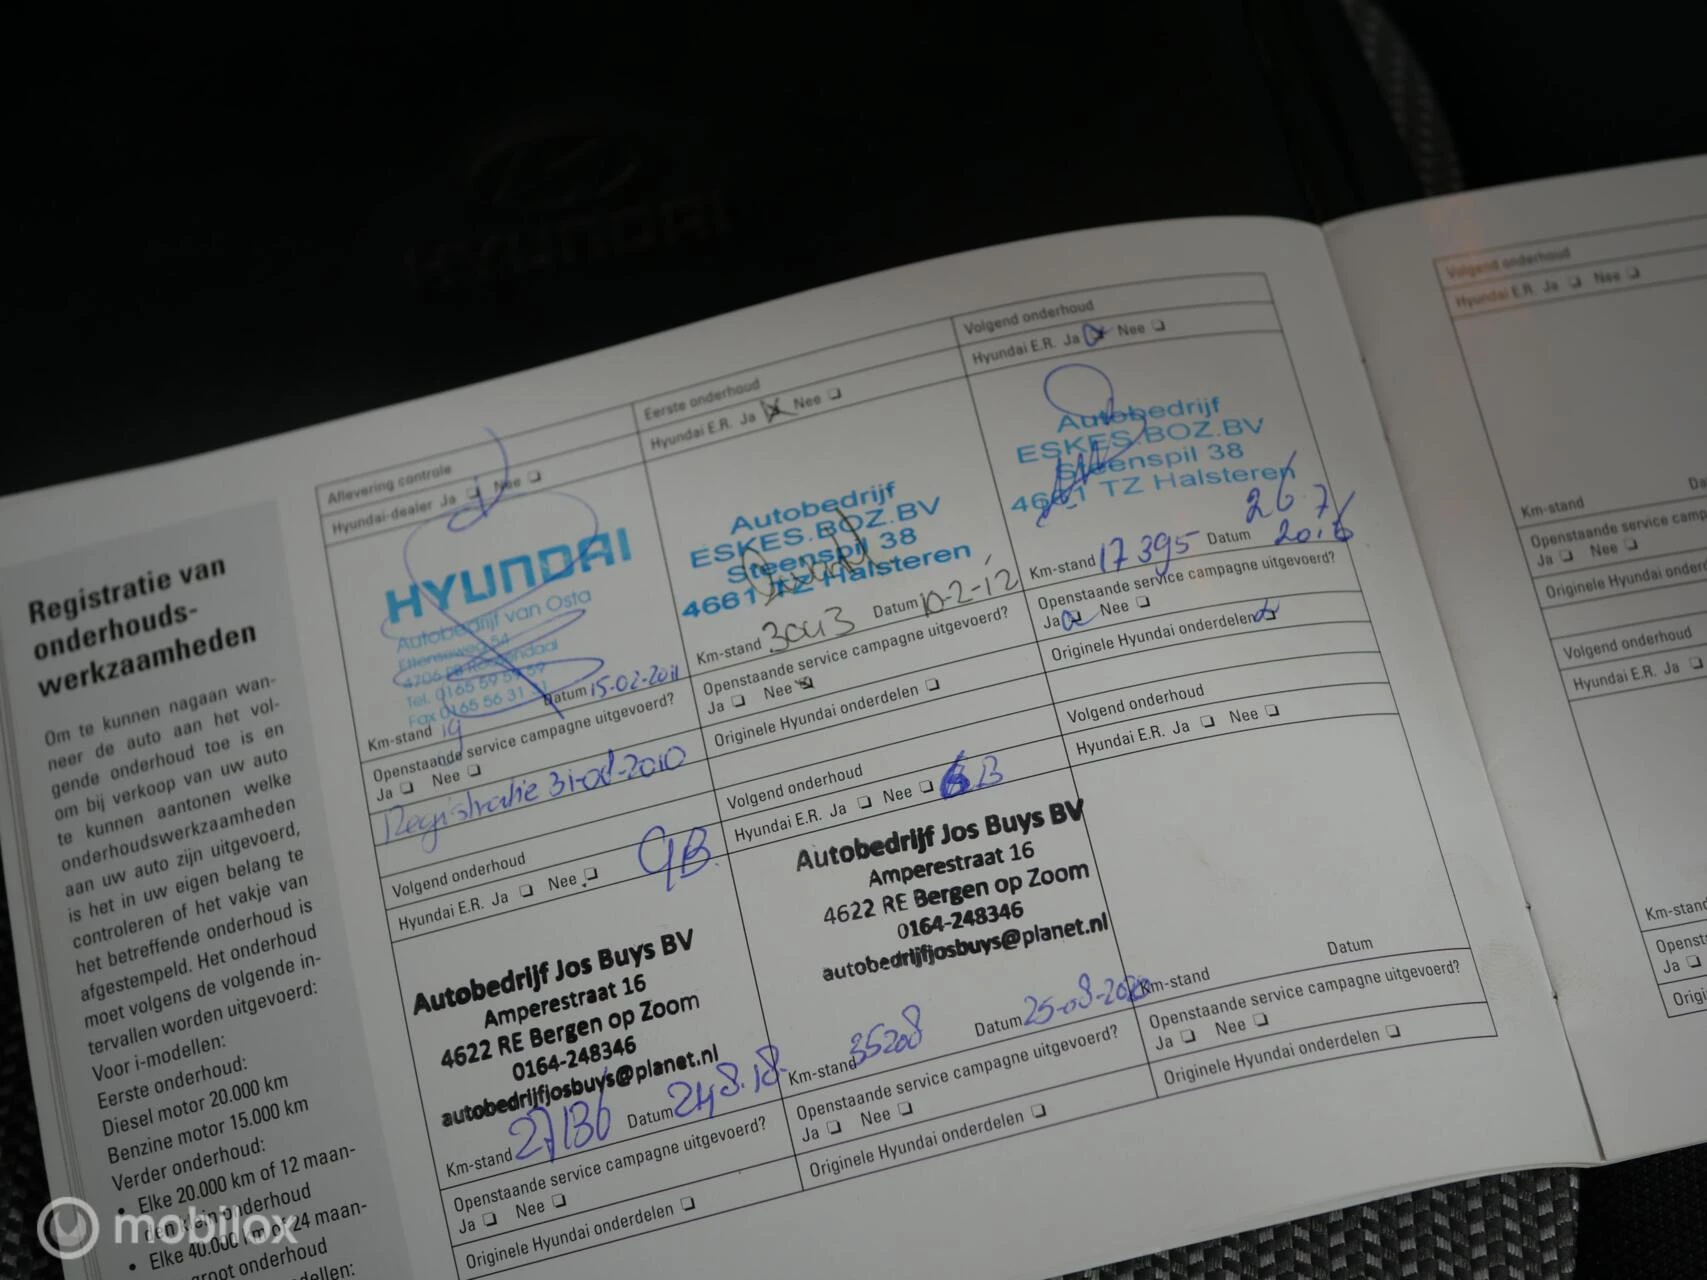 HYUNDAI
Registratie van
onderhouds-
werkzaamheden
Om te kunnen nagaan wan-
neer de auto aan het vol-
gende onderhoud toe is en
om bij verkoop van uw auto
te kunnen aantonen welke
onderhoudswerkzaamheden
aan uw auto zijn uitgevoerd,
is het in uw eigen belang te
controleren of het vakje van
het betreffende onderhoud is
afgestempeld. Het onderhoud
moet volgens de volgende in-
tervallen worden uitgevoerd:
Voor i-modellen:
Eerste onderhoud:
Diesel motor 20.000 km
Benzine motor 15.000 km
Verder onderhoud:
• Elke 20.000 km of 12 maan-
den klein onderhoud
• Elke 40.000 km of 24 maan-
groot onderhoud
Aflevering controle
Hyundai-dealer Ja Nee
HYUNDAI
Autobedrijf van Osta
Ettenseweg 54
4706 PB Roosendaal
Tel. 0165 59 59 59
Fax 0165 56 31 31
Km-stand 19 Datum 15-02-2011
Openstaande service campagne uitgevoerd?
Ja Nee
Registratie 31-08-2010
Eerste onderhoud
Hyundai E.R. Ja Nee
Autobedrijf
ESKES.BOZ.BV
Steenspil 38
4661 TZ Halsteren
Km-stand 3043 Datum 10-2-'12
Openstaande service campagne uitgevoerd?
Ja Nee
Originele Hyundai onderdelen
Volgend onderhoud
Hyundai E.R. Ja Nee
Autobedrijf
ESKES.BOZ.BV
Steenspil 38
4661 TZ Halsteren
Km-stand 17395 Datum 26/7/2016
Openstaande service campagne uitgevoerd?
Ja Nee
Originele Hyundai onderdelen
Volgend onderhoud
Hyundai E.R. Ja Nee GB.
Autobedrijf Jos Buys BV
Amperestraat 16
4622 RE Bergen op Zoom
0164-248346
autobedrijfjosbuys@planet.nl
Km-stand 27136 Datum 24.8.18.
Openstaande service campagne uitgevoerd?
Ja Nee
Originele Hyundai onderdelen
Volgend onderhoud
Hyundai E.R. Ja Nee
Autobedrijf Jos Buys BV
Amperestraat 16
4622 RE Bergen op Zoom
0164-248346
autobedrijfjosbuys@planet.nl
Km-stand 35208 Datum 25-08-2020
Openstaande service campagne uitgevoerd?
Ja Nee
Originele Hyundai onderdelen
Volgend onderhoud
Hyundai E.R. Ja Nee
Km-stand Datum
Openstaande service campagne uitgevoerd?
Ja Nee
Originele Hyundai onderdelen
Volgend onderhoud
Hyundai E.R. Ja Nee
Km-stand
Openstaande service campagne
Ja Nee
Originele Hyundai
Volgend onderhoud
Hyundai E.R. Ja
Km-stand
Ja
mobilox